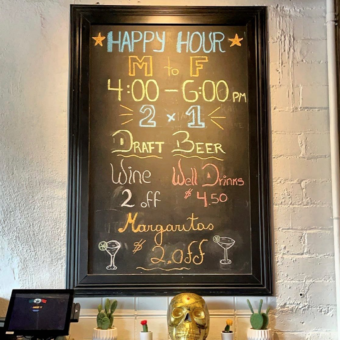 HAPPY HOUR
M to F
4:00 - 6:00 PM
2 x 1
Draft Beer
Wine Well Drinks
2 off $4.50
Margaritas
$2.off